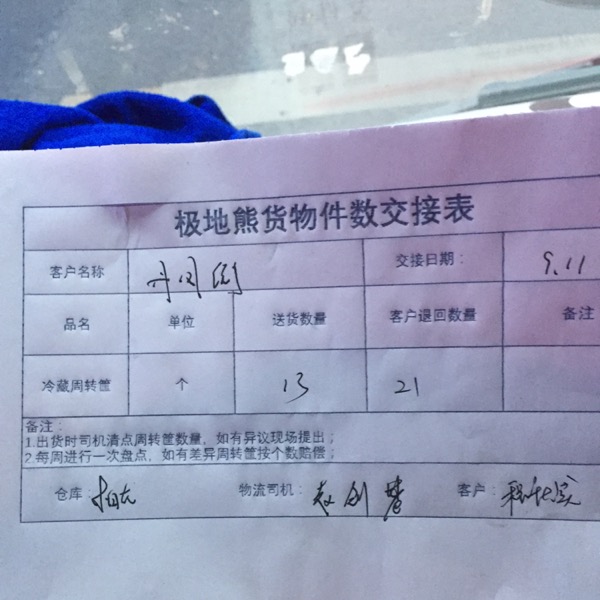 极地熊货物件数交接表
客户名称 交接日期： 9.11
品名 单位 送货数量 客户退回数量 备注
冷藏周转筐 个 13 21
备注：
1.出货时司机清点周转筐数量，如有异议现场提出；
2.每周进行一次盘点，如有差异周转筐按个数赔偿；
仓库： 物流司机： 客户：